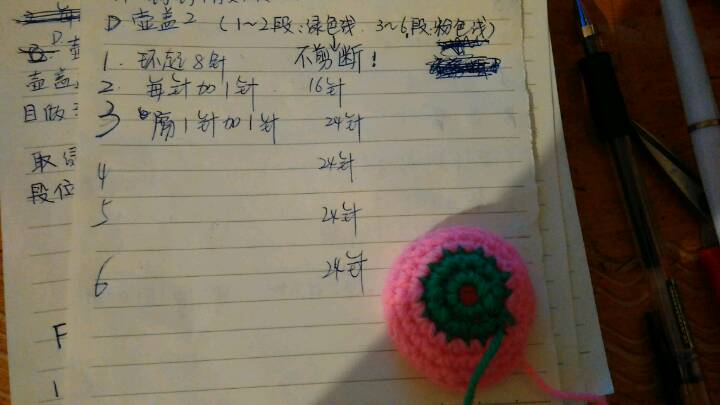 D 壶盖2 (1~2段:绿色线 3~6段:粉色线)
不剪断!
1. 环起8针
2. 每针加1针 16针
3 隔1针加1针 24针
4 24针
5 24针
6 24针
壶盖
目
取
段位
F
1